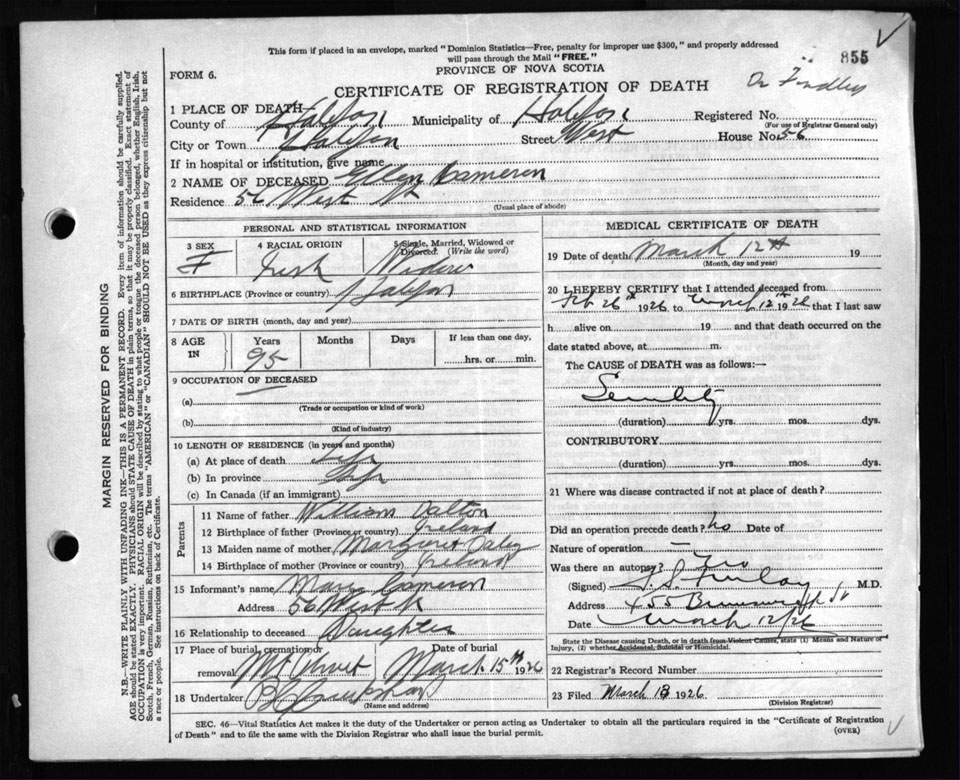 This form if placed in an envelope, marked "Dominion Statistics—Free, penalty for improper use $300," and properly addressed
will pass through the Mail "FREE."
855
FORM 6.
PROVINCE OF NOVA SCOTIA
CERTIFICATE OF REGISTRATION OF DEATH
Dr
1 PLACE OF DEATH
County of Halifax Municipality of Halifax Registered No.
(For use of Registrar General only)
City or Town Halifax Street West House No. 56
If in hospital or institution, give name
2 NAME OF DECEASED Ellen Cameron
Residence 56 West St
(Usual place of abode)
PERSONAL AND STATISTICAL INFORMATION
3 SEX 4 RACIAL ORIGIN 5 Single, Married, Widowed or Divorced. (Write the word)
F Irish Widow
6 BIRTHPLACE (Province or country) Halifax
7 DATE OF BIRTH (month, day and year)
8 AGE IN Years Months Days If less than one day,
95 hrs. or min.
9 OCCUPATION OF DECEASED
(a)
(Trade or occupation or kind of work)
(b)
(Kind of industry)
10 LENGTH OF RESIDENCE (in years and months)
(a) At place of death Life
(b) In province Life
(c) In Canada (if an immigrant)
Parents
11 Name of father William Dalton
12 Birthplace of father (Province or country) Ireland
13 Maiden name of mother Margaret Daley
14 Birthplace of mother (Province or country) Ireland
15 Informant's name Mary Cameron
Address 56 West St
16 Relationship to deceased Daughter
17 Place of burial, cremation or removal Mt Olivet Date of burial March 15th 1926
18 Undertaker
(Name and address)
MEDICAL CERTIFICATE OF DEATH
19 Date of death March 12th 19
(Month, day and year)
20 I HEREBY CERTIFY that I attended deceased from
Feb 26th 1926 to March 12th 1926 that I last saw
h alive on 19 and that death occurred on the
date stated above, at m.
The CAUSE of DEATH was as follows:—
Senility
(duration) yrs. mos. dys.
CONTRIBUTORY
(duration) yrs. mos. dys.
21 Where was disease contracted if not at place of death?
Did an operation precede death? No Date of
Nature of operation —
Was there an autopsy? No
(Signed) Finlay M.D.
Address 455 Brunswick St
Date March 12/26
State the Disease causing Death, or in death from Violent Causes, state (1) Means and Nature of
Injury, (2) whether Accidental, Suicidal or Homicidal.
22 Registrar's Record Number
23 Filed March 13 1926
(Division Registrar)
SEC. 46—Vital Statistics Act makes it the duty of the Undertaker or person acting as Undertaker to obtain all the particulars required in the "Certificate of Registration
of Death" and to file the same with the Division Registrar who shall issue the burial permit.
(OVER)
MARGIN RESERVED FOR BINDING
N.B.—WRITE PLAINLY WITH UNFADING INK—THIS IS A PERMANENT RECORD. Every item of information should be carefully supplied.
AGE should be stated EXACTLY. PHYSICIANS should STATE CAUSE OF DEATH in plain terms, so that it may be properly classified. Exact statement of
OCCUPATION is very important. RACIAL ORIGIN will be described by stating to what people or tongue the deceased person belonged, whether English, Irish,
Scotch, French, German, Russian, Ruthenian, etc. The terms "AMERICAN" or "CANADIAN" SHOULD NOT BE USED as they express citizenship but not
a race or people. See instructions on back of Certificate.